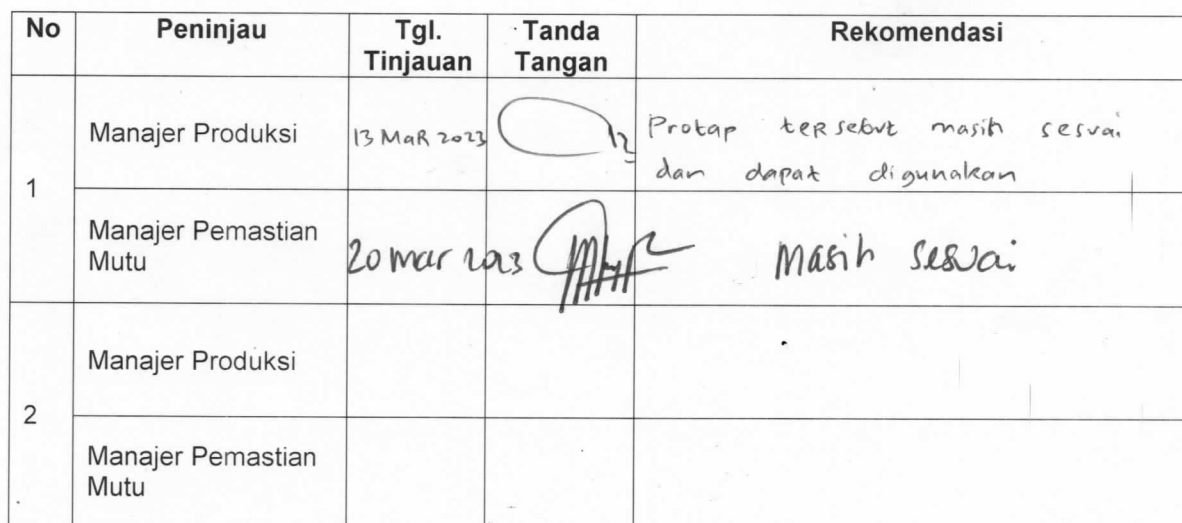 No Peninjau Tgl. Tinjauan Tanda Tangan Rekomendasi
1
Manajer Produksi 13 MaR 2023 Protap tersebut masih sesuai
dan dapat digunakan
Manajer Pemastian
Mutu
20 mar 2023 Masih sesuai
2
Manajer Produksi
Manajer Pemastian
Mutu